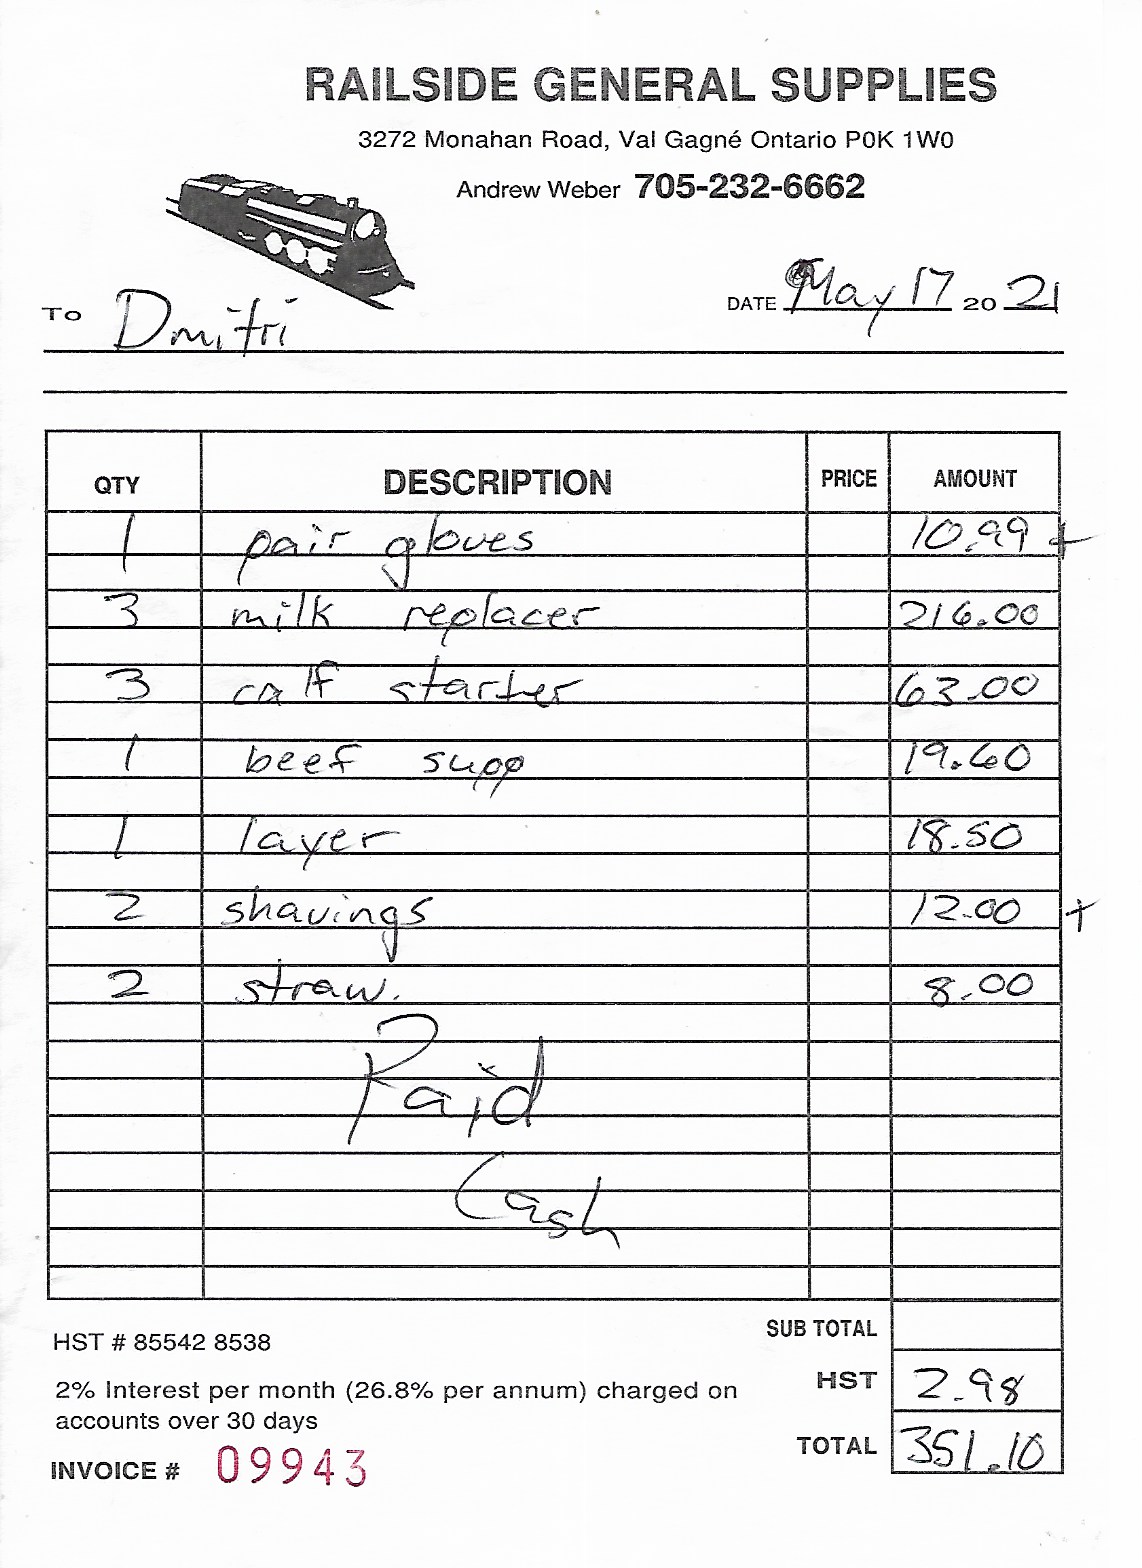 RAILSIDE GENERAL SUPPLIES
3272 Monahan Road, Val Gagné Ontario P0K 1W0
Andrew Weber 705-232-6662
TO Dmitri DATE May 17 20 21
QTY DESCRIPTION PRICE AMOUNT
1 pair gloves 10.99 +
3 milk replacer 216.00
3 calf starter 63.00
1 beef supp 19.60
1 layer 18.50
2 shavings 12.00 +
2 straw. 8.00
Paid
Cash
SUB TOTAL
HST # 85542 8538
HST 2.98
2% Interest per month (26.8% per annum) charged on
accounts over 30 days
TOTAL 351.10
INVOICE # 09943